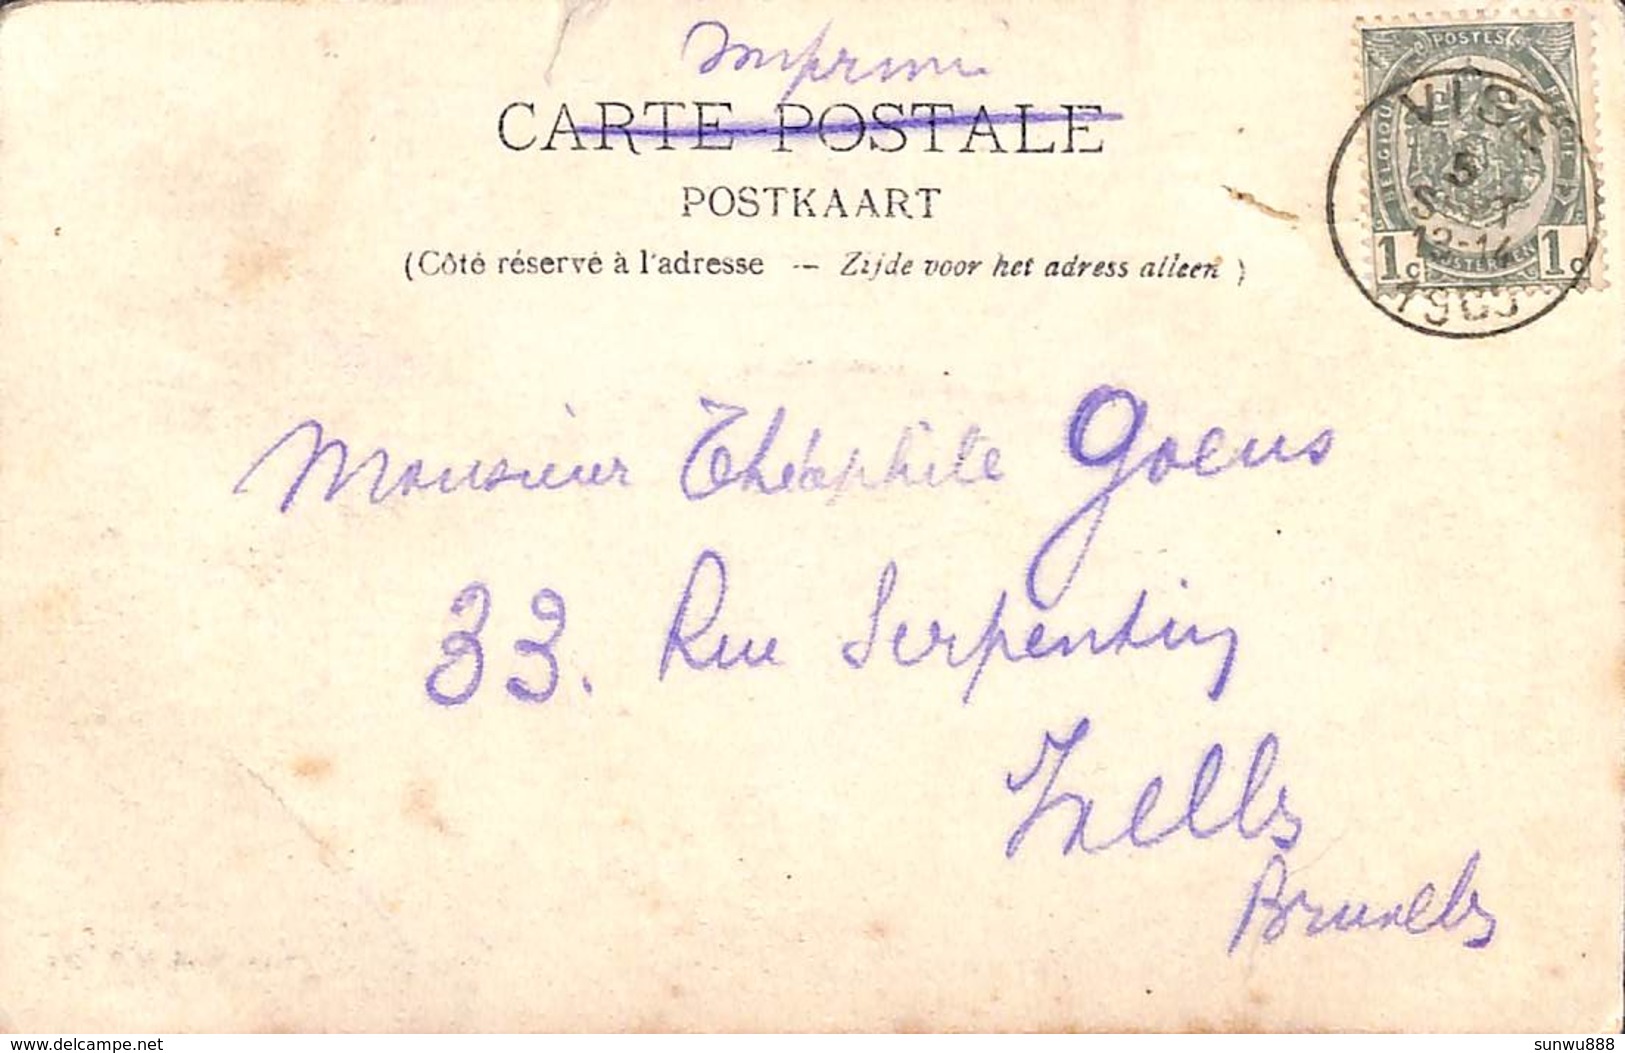 Imprimé
CARTE POSTALE
POSTKAART
(Côté réservé à l'adresse -- Zijde voor het adress alleen)
POSTES
BELGIQUE
1c 1c
VISÉ
5
SEPT
12-14
Monsieur Théophile Goeus
33. Rue Serpentin
Ixelles
Bruxelles
www.delcampe.net
sunwu888